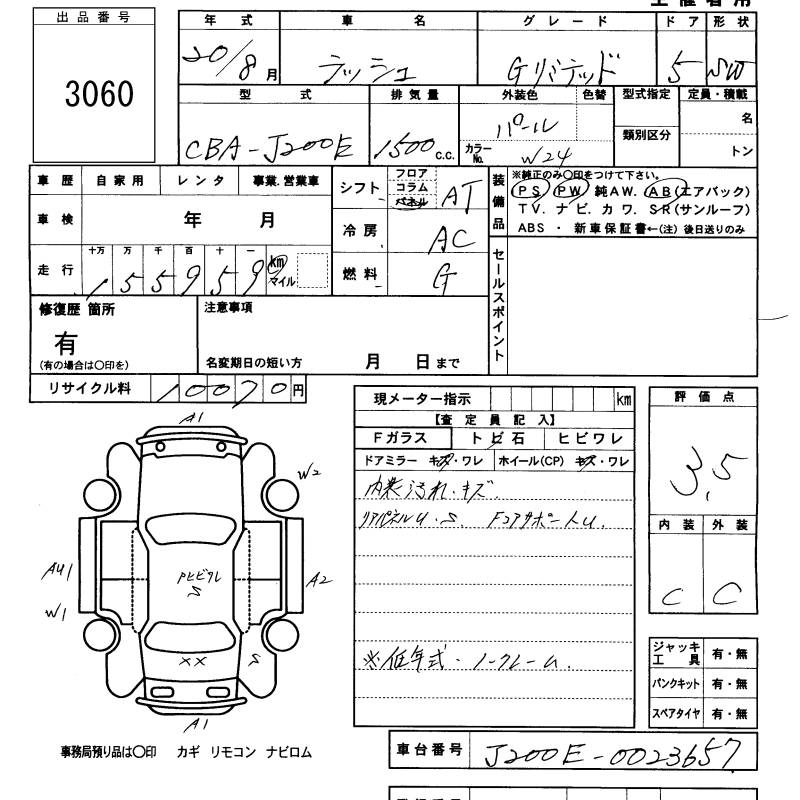 出品番号
3060
年式 車名 グレード ドア 形状
20/8月 ラッシュ Gリミテッド 5 SW
型式 排気量 外装色 色替 型式指定 定員・積載
CBA-J200E 1500 c.c. パール 類別区分 名
カラーNo. W24 トン
車歴 自家用 レンタ 事業.営業車
シフト フロア コラム パネル AT
装備品
※純正のみ〇印をつけて下さい。
PS PW 純AW. AB(エアバック)
TV. ナビ. カワ. SR(サンルーフ)
ABS ・ 新車保証書←(注) 後日送りのみ
車検 年 月
冷房 AC
走行 十万 万 千 百 十 一
155959 km マイル
燃料 G
セールスポイント
修復歴 箇所
有
(有の場合は〇印を)
注意事項
名変期日の短い方 月 日まで
リサイクル料 10070円
現メーター指示 km
【査定員記入】
Fガラス トビ石 ヒビワレ
ドアミラー キズ・ワレ ホイール(CP) キズ・ワレ
内装汚れ.キズ.
リアパネルU.S. FコアサポートU.
※低年式.ノークレーム.
評価点
3.5
内装 外装
C C
ジャッキ工具 有・無
パンクキット 有・無
スペアタイヤ 有・無
A1
W2
AU1
PヒビワレS
A2
W1
XX
S
A1
事務局預り品は〇印 カギ リモコン ナビロム
車台番号 J200E-0023657